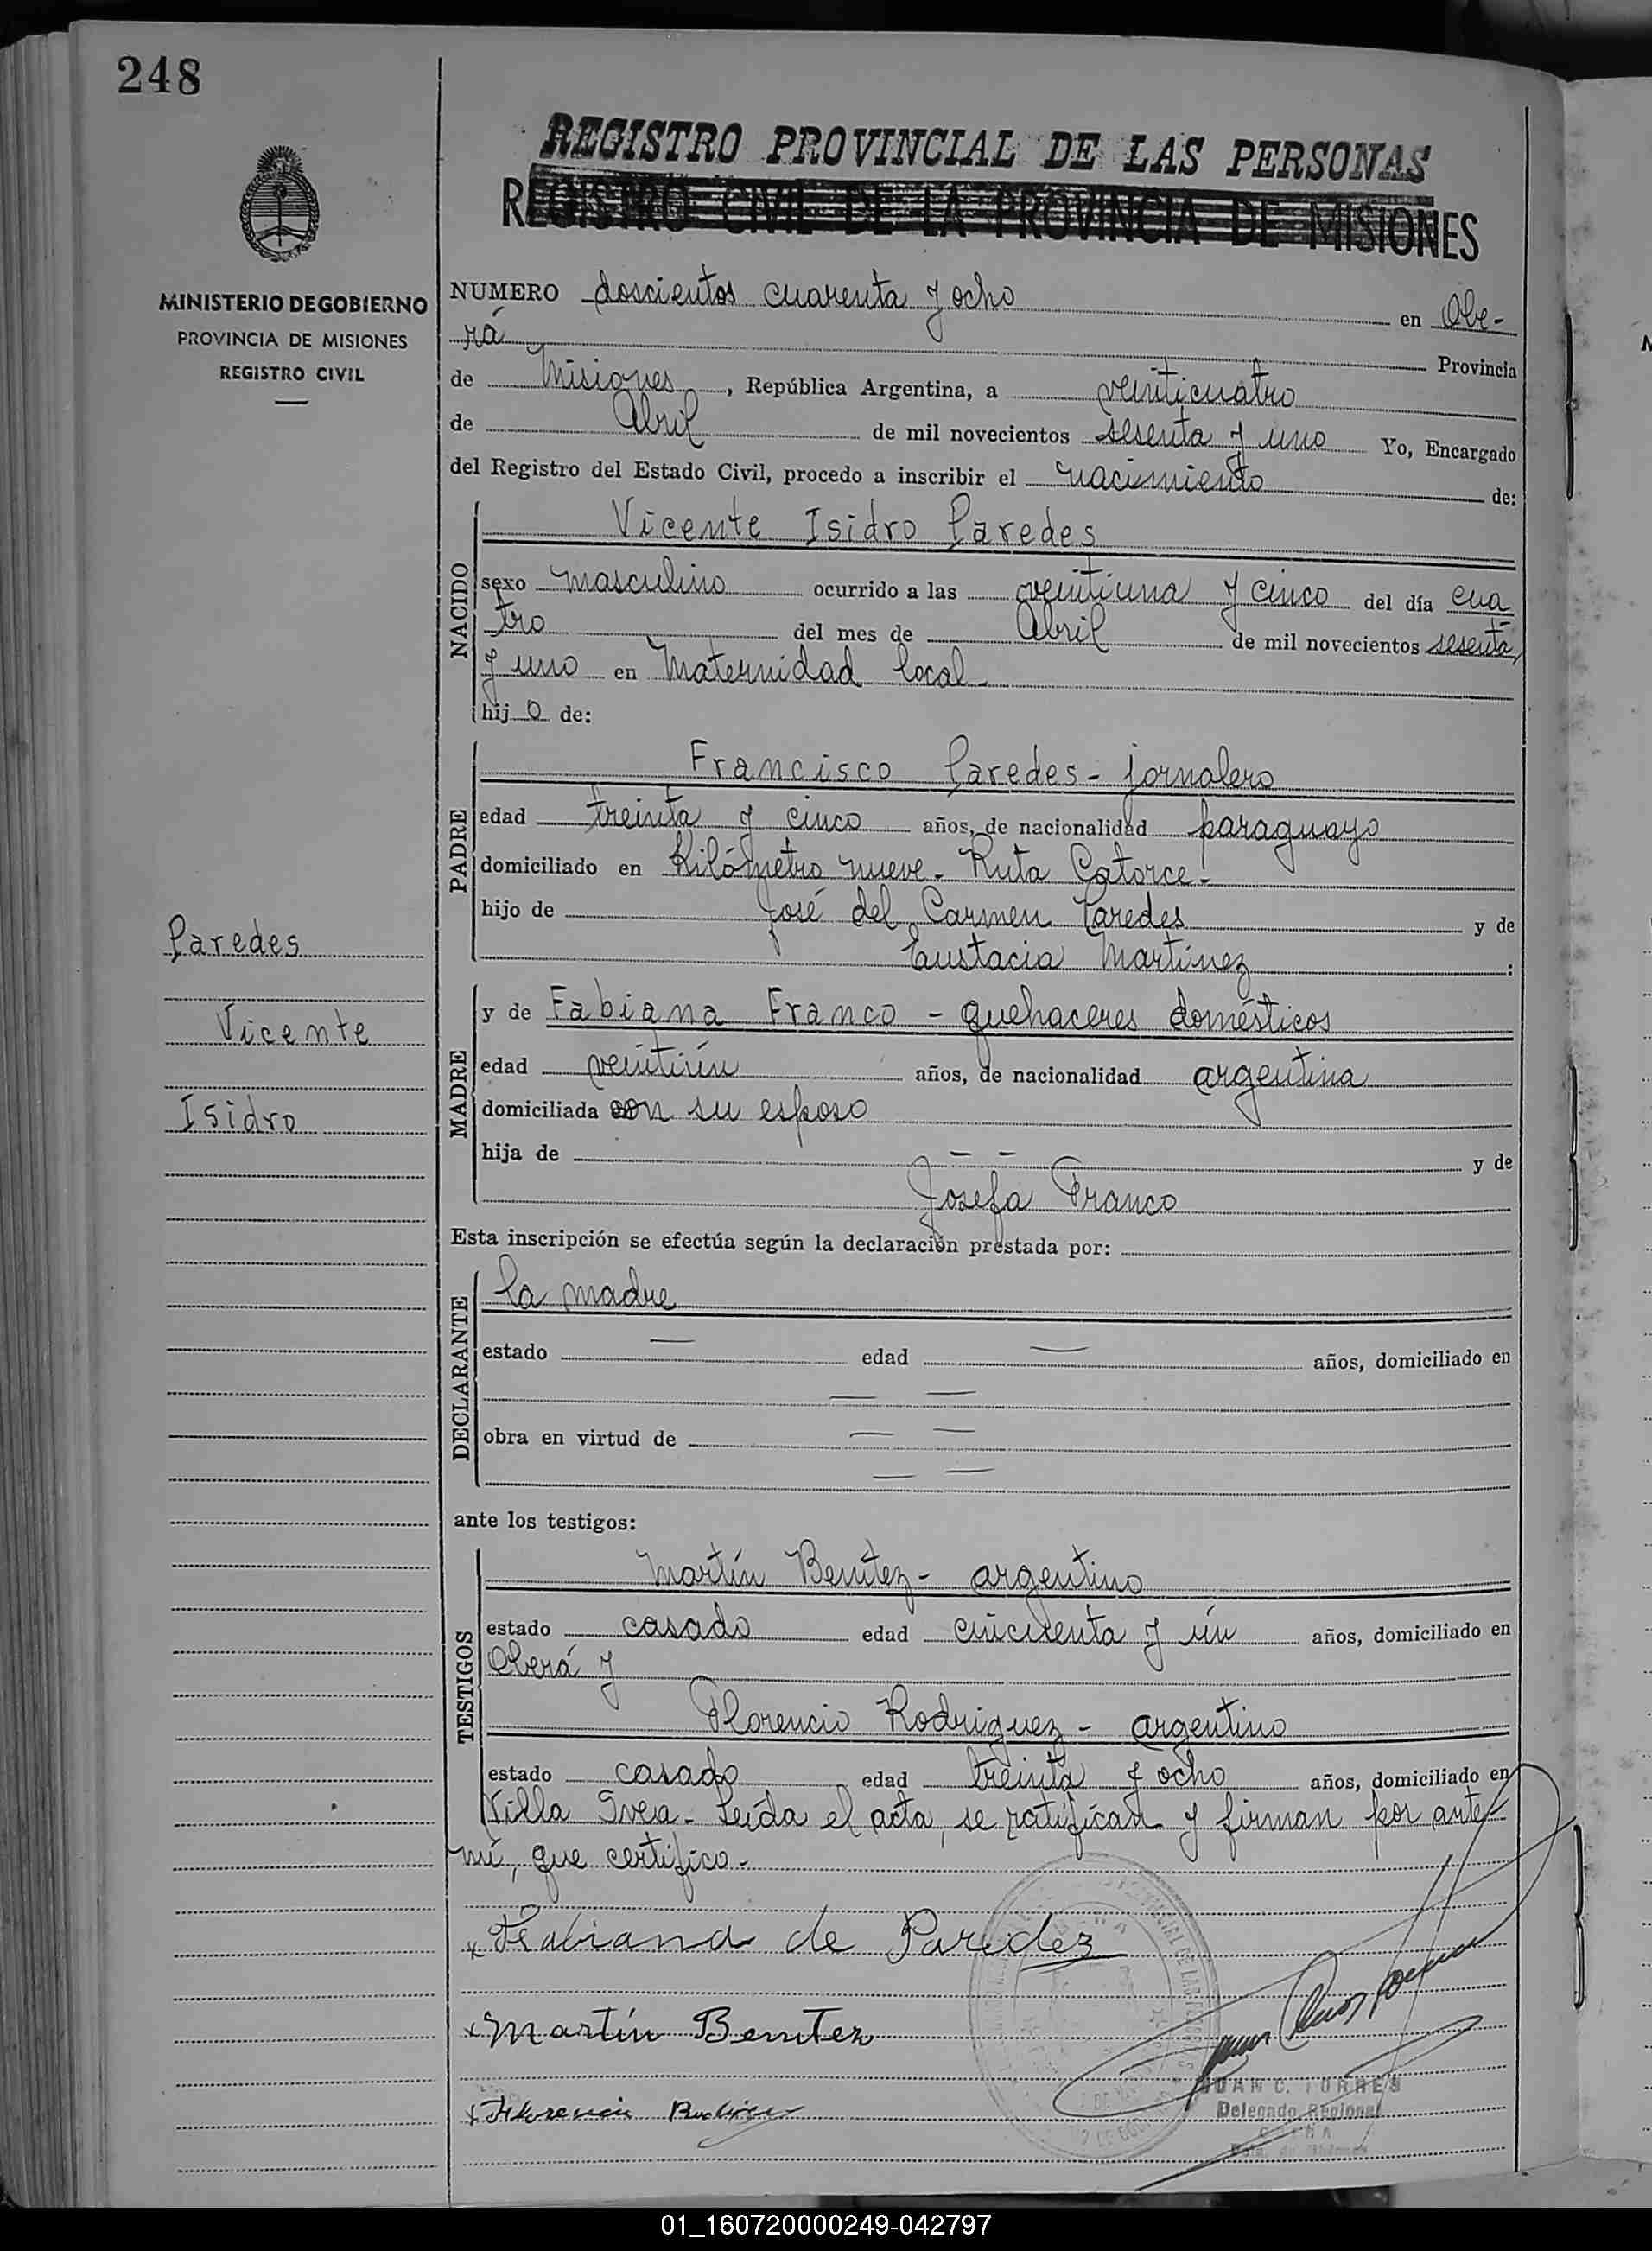 248
REGISTRO PROVINCIAL DE LAS PERSONAS
REGISTRO CIVIL DE LA PROVINCIA DE MISIONES
MINISTERIO DE GOBIERNO
PROVINCIA DE MISIONES
REGISTRO CIVIL
NUMERO doscientos cuarenta y ocho en Obe-
rá Provincia
de Misiones, República Argentina, a veinticuatro
de Abril de mil novecientos sesenta y uno Yo, Encargado
del Registro del Estado Civil, procedo a inscribir el nacimiento de:
NACIDO
Vicente Isidro Paredes
sexo masculino ocurrido a las veintiuna y cinco del día cua
tro del mes de Abril de mil novecientos sesenta
y uno en Maternidad local-
hijo de:
PADRE
Francisco Paredes- jornalero
edad treinta y cinco años, de nacionalidad paraguayo
domiciliado en Kilómetro nueve- Ruta Catorce-
hijo de José del Carmen Paredes y de
Eustacia Martínez :
Paredes
Vicente
Isidro
MADRE
y de Fabiana Franco - quehaceres domésticos
edad veintiún años, de nacionalidad argentina
domiciliada con su esposo
hija de — — y de
Josefa Franco
Esta inscripción se efectúa según la declaración prestada por:
DECLARANTE
la madre
estado — edad — años, domiciliado en
— —
obra en virtud de — —
— —
ante los testigos:
TESTIGOS
Martín Benítez- argentino
estado casado edad cincuenta y ún años, domiciliado en
Oberá y
Florencio Rodriguez - argentino
estado casado edad treinta y ocho años, domiciliado en
Villa Svea- Leída el acta, se ratifican y firman por ante-
mí, que certifico-
x Fabiana de Paredez
x Martín Benitez
x Florencio
JUAN C. TORRES
Delegado Regional
01_160720000249-042797